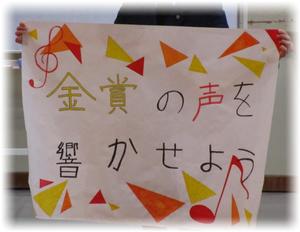 金賞の声を
響かせよう